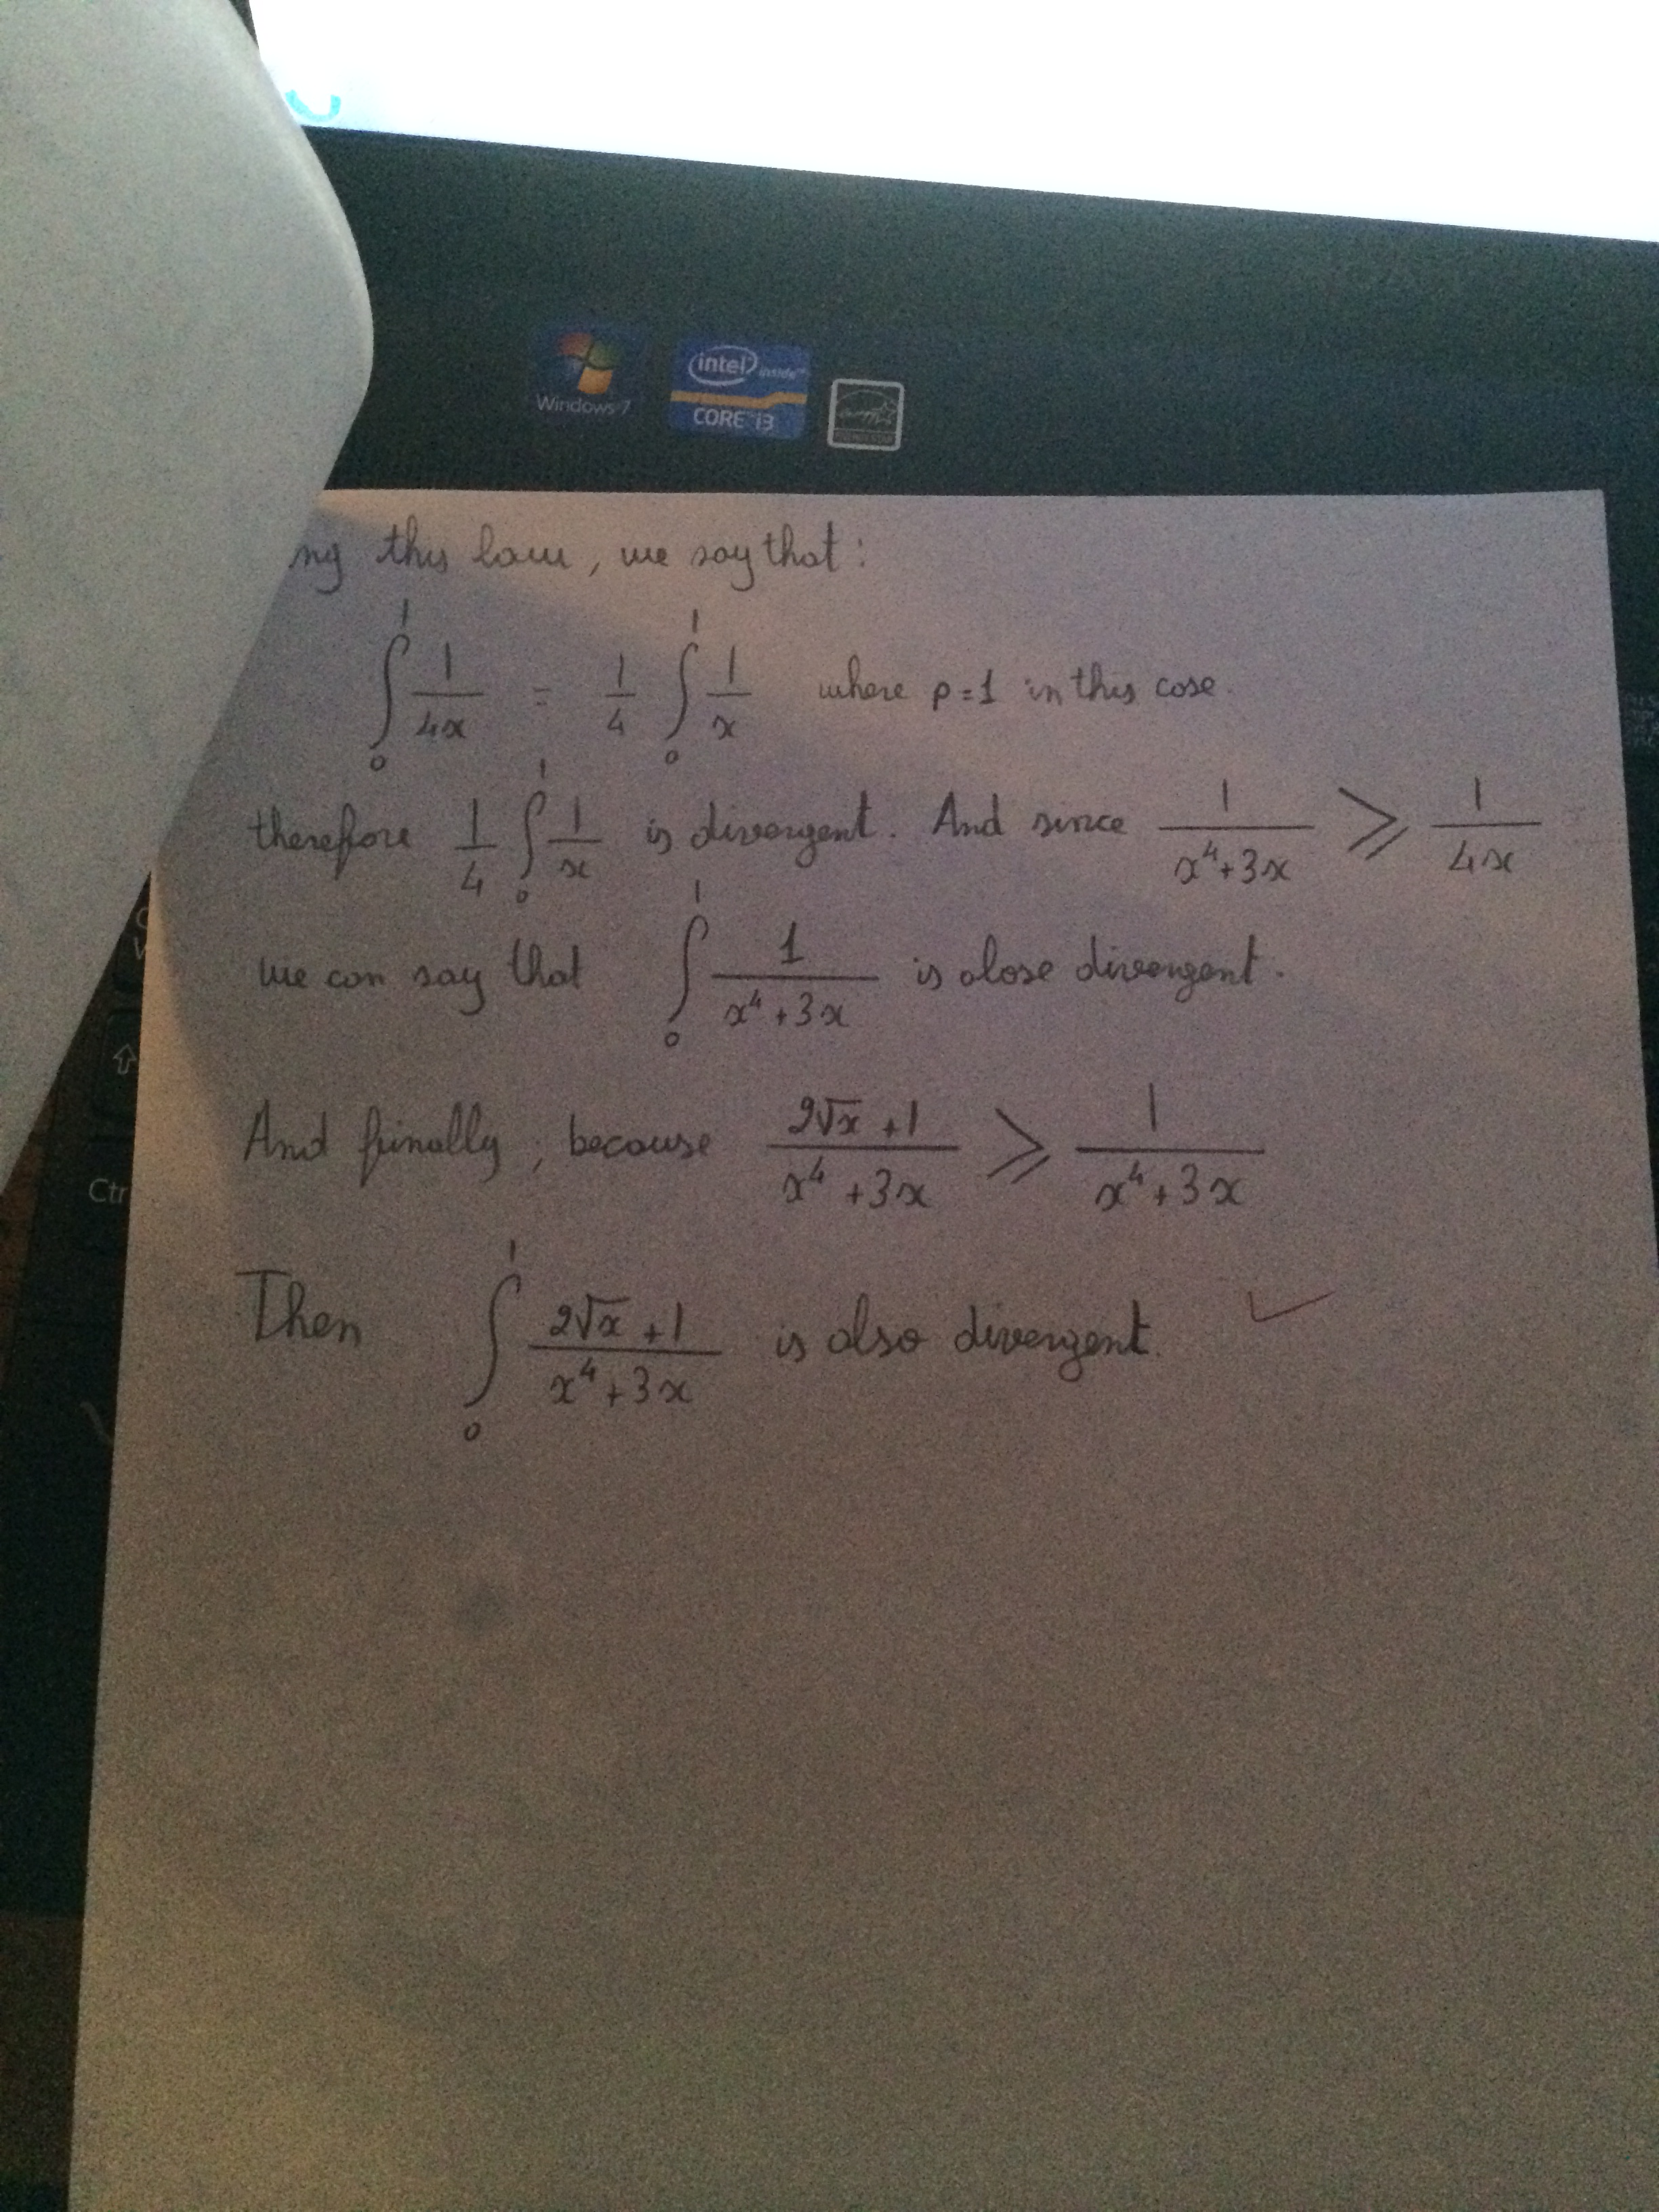 Windows 7
intel inside™
CORE i3
ng this law, we say that:
∫₀¹ 1/4x = 1/4 ∫₀¹ 1/x where p=1 in this case.
therefore 1/4 ∫₀¹ 1/x is divergent. And since 1/(x⁴+3x) ⩾ 1/4x
we can say that ∫₀¹ 1/(x⁴+3x) is alose divengent.
And finally, because (2√x+1)/(x⁴+3x) ⩾ 1/(x⁴+3x)
Then ∫₀¹ (2√x+1)/(x⁴+3x) is also divergent. ✓
Ctr